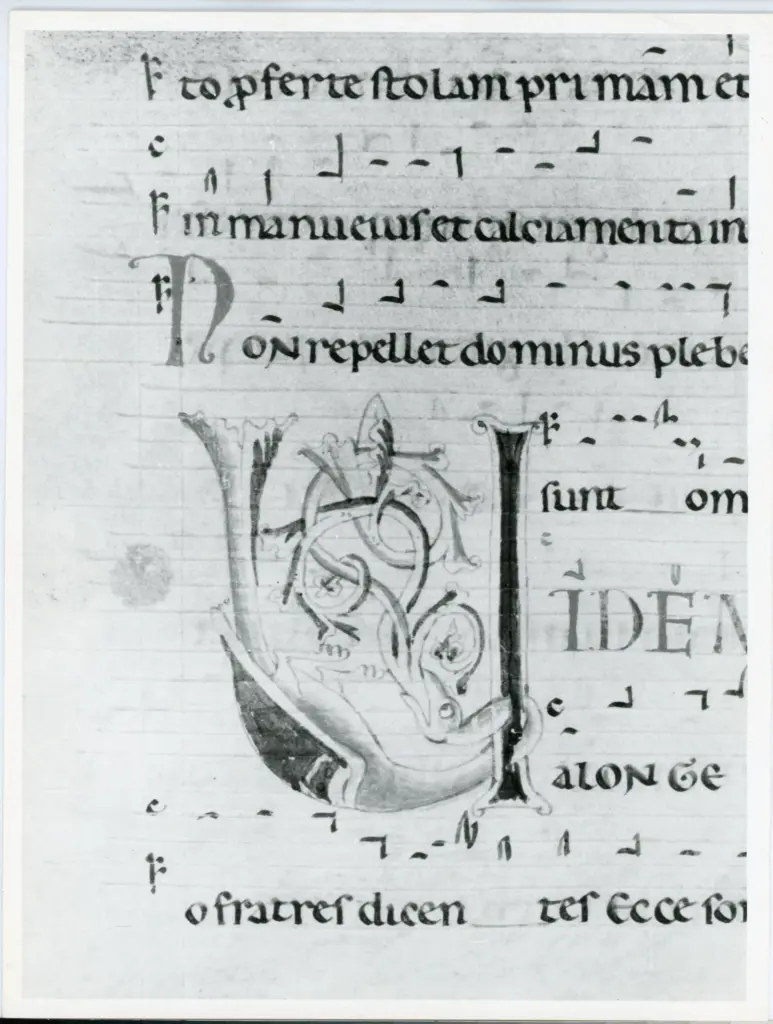 to ꝓferte ſtolam pri mām et
in manu eiuſ et calciamenta in
NON repellet dominus plebe
ſunt om
VIDEN
alonge
o fratreſ dicen teſ Ecce ſon